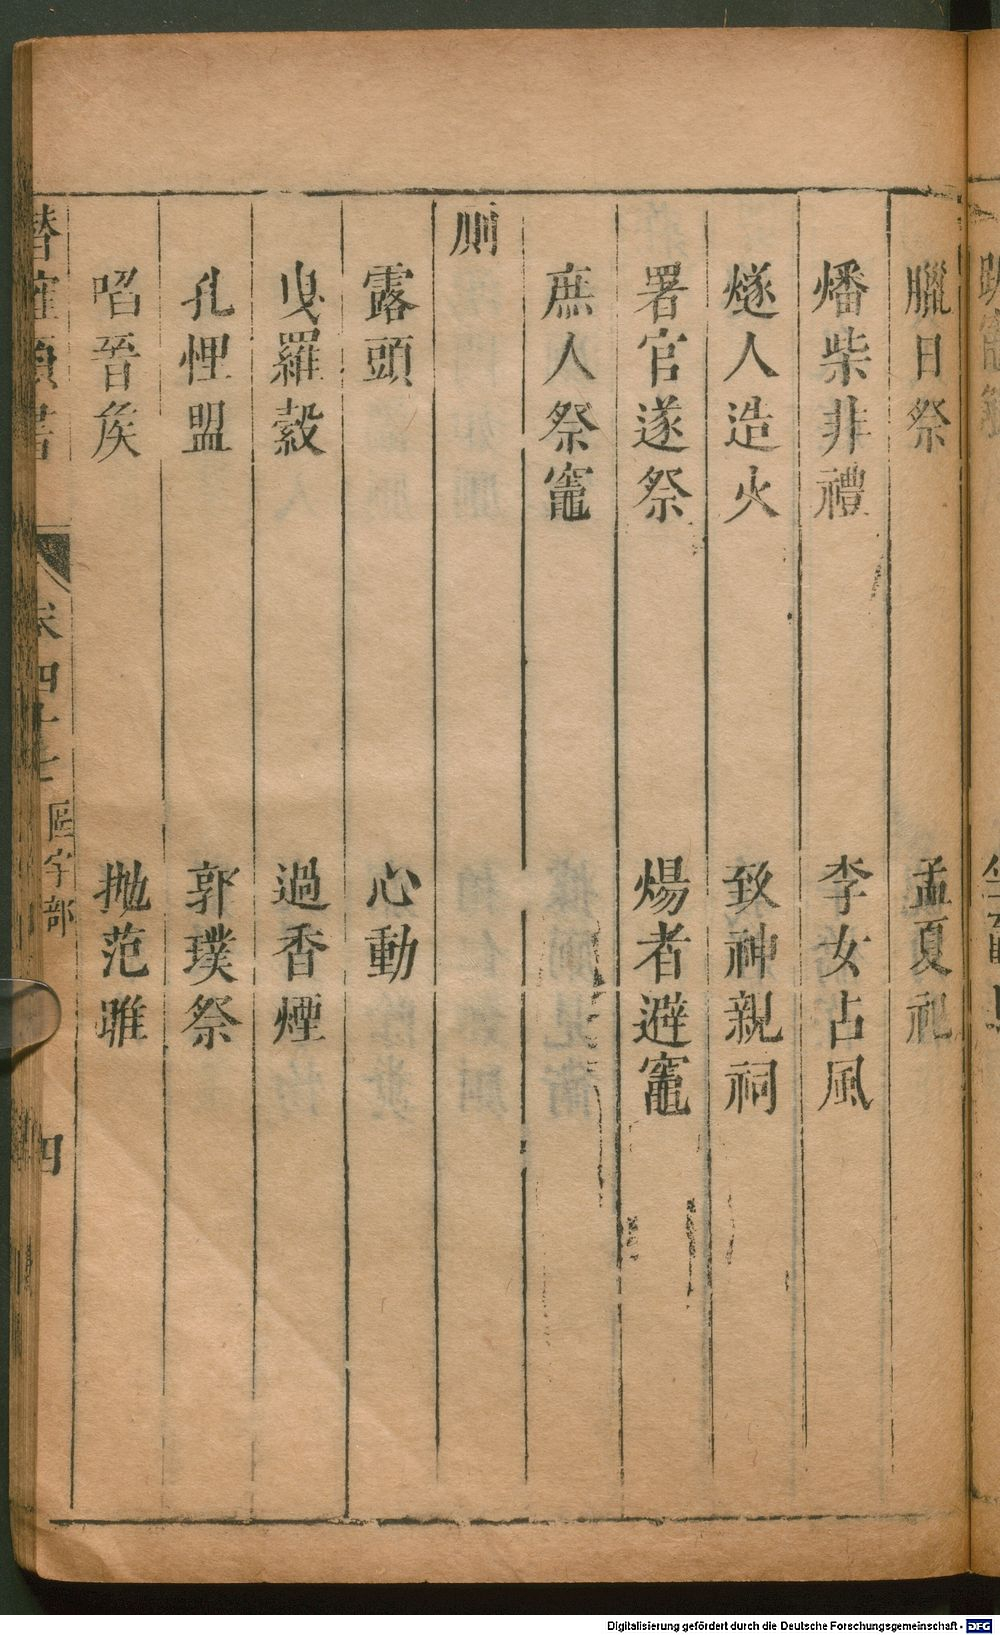 臘日祭 孟夏祀
燔柴非禮 李女占風
燧人造火 致神親祠
署官遂祭 煬者避竈
庶人祭竈
厠
露頭 心動
曳羅縠 過香煙
孔悝盟 郭璞祭
啗晉矦 拋范雎
潛確類書
卷四十七
區宇部
四
Digitalisierung gefördert durch die Deutsche Forschungsgemeinschaft - DFG